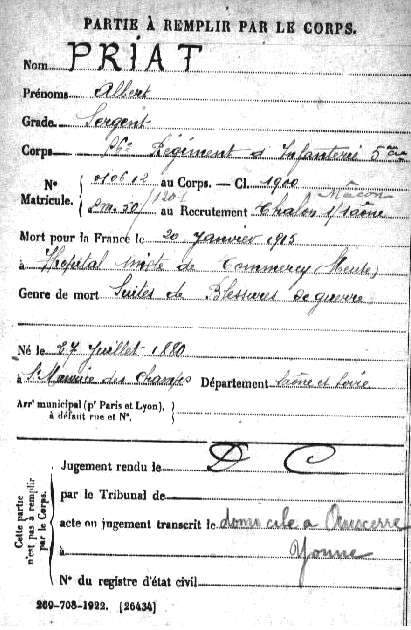 PARTIE À REMPLIR PAR LE CORPS.
Nom PRIAT
Prénoms Albert
Grade Sergent
Corps Régiment d'Infanterie 5e
N° 01062 au Corps. — Cl. 1900
Mâcon
Matricule. au Recrutement Chalon s/saône
Mort pour la France le 20 Janvier 1915
à Hopital mixte de Commercy (Meuse)
Genre de mort Suites de Blessures de guerre
Né le 27 Juillet 1880
à St Maurice des Champs Département Saône et Loire
Arrt municipal (pr Paris et Lyon),
à défaut rue et N°.
Cette partie n'est pas à remplir par le Corps.
Jugement rendu le D C
par le Tribunal de
acte ou jugement transcrit le domicile à Auxerre
à Yonne
N° du registre d'état civil
269-708-1922. [26434]